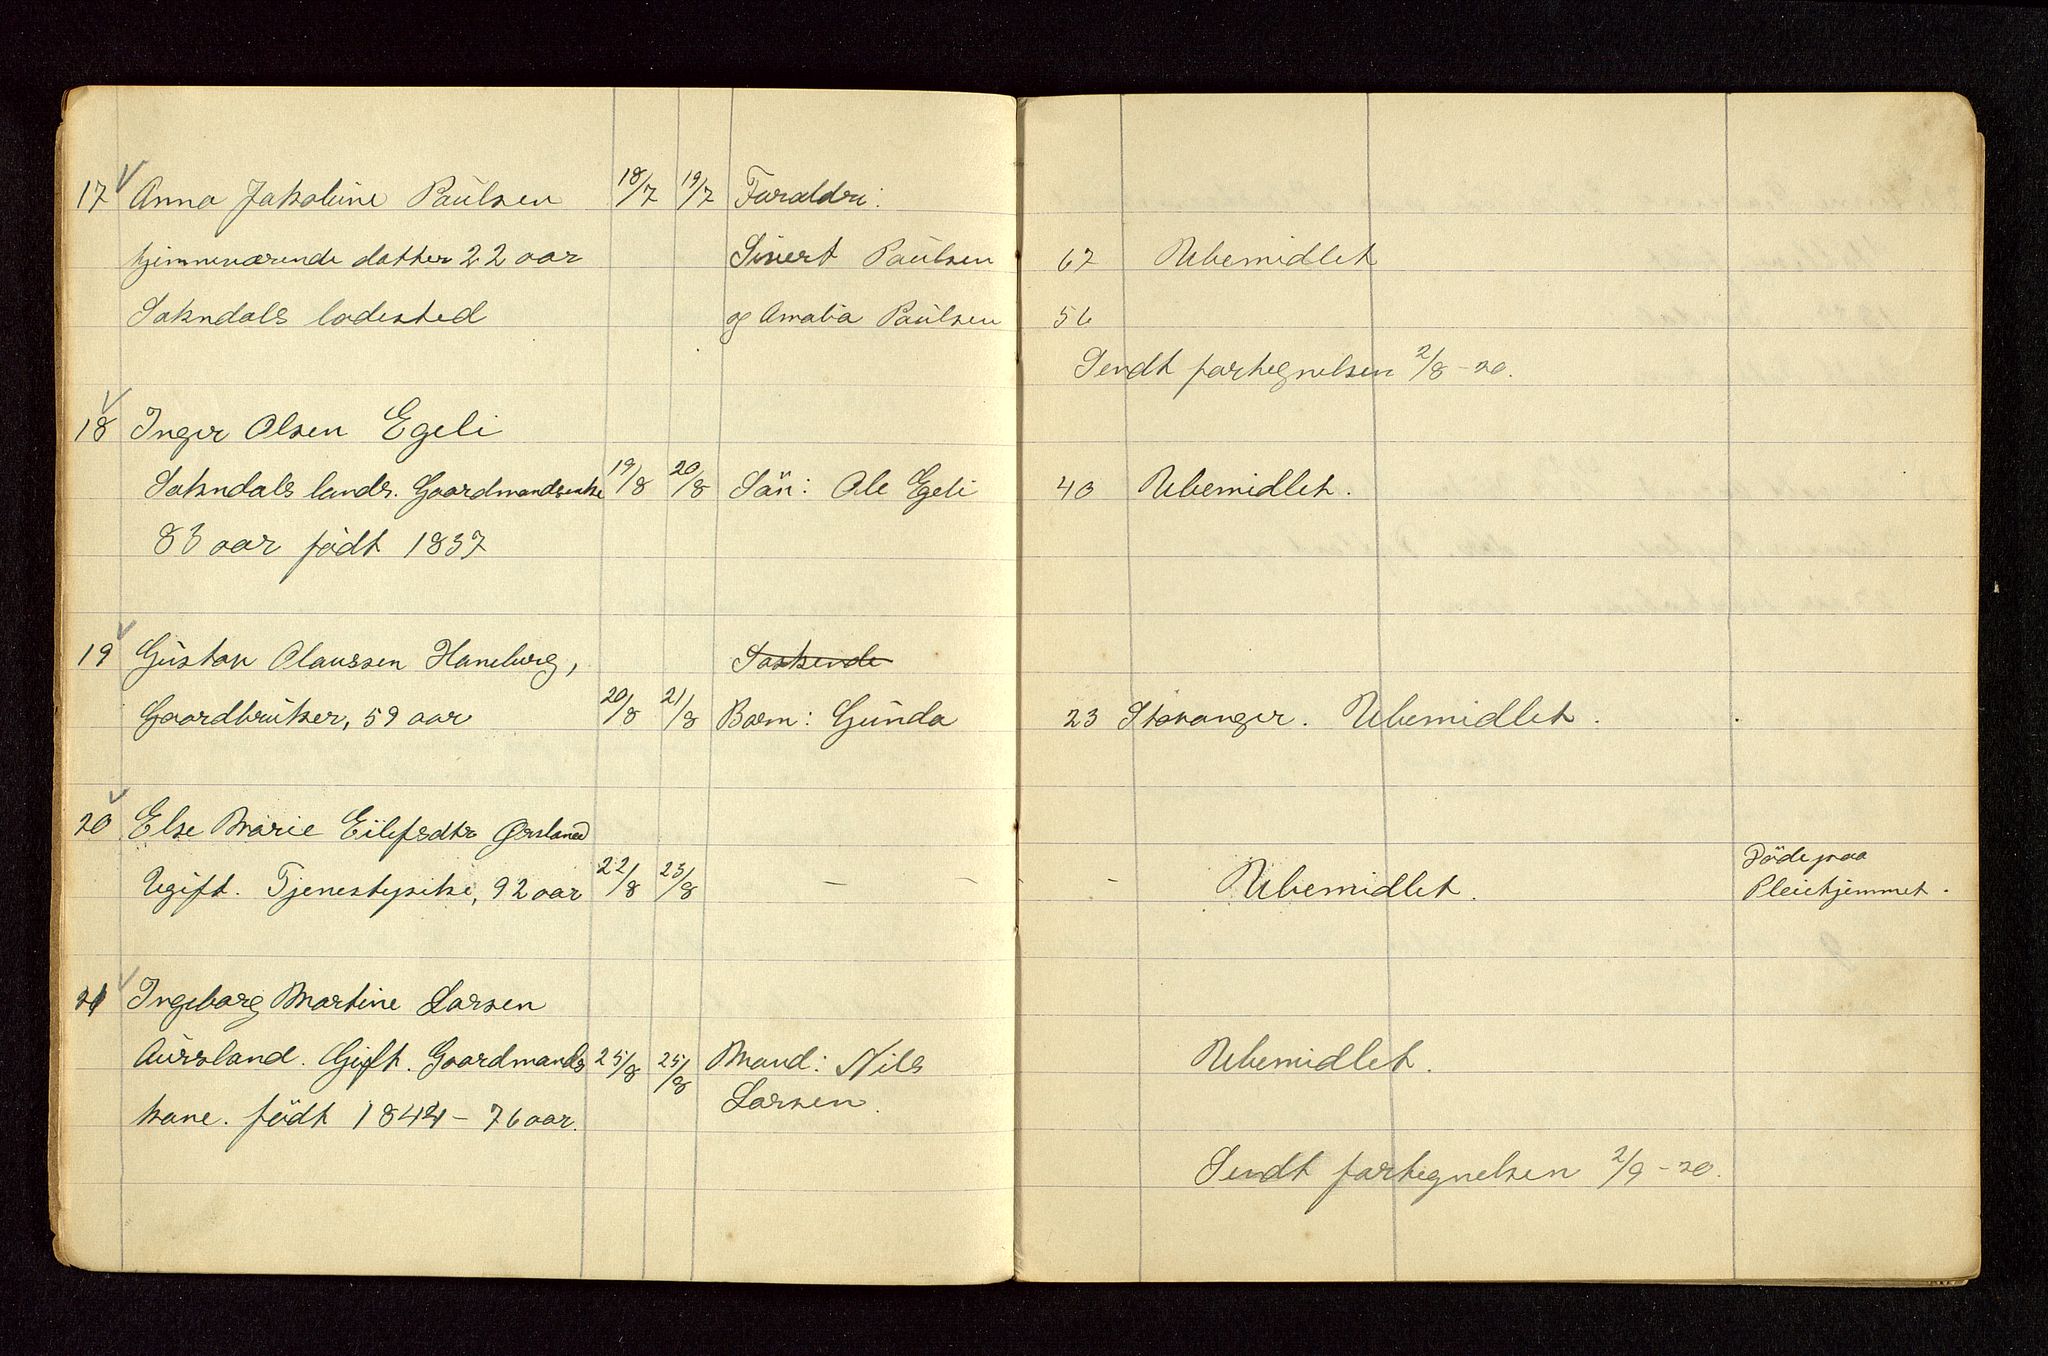 17 Anna Jakobine Paulsen 18/7 19/7 Foraldre:
hjemmeværende datter 22 aar Sivert Paulsen 67 Ubemidlet
Sokndals ladested og Amalia Paulsen 56
Sendt fortegnelsen 2/8-20.
18 Inger Olsen Egeli
Sokndals lands. Gaardmandsenke 19/8 20/8 Sön: Ole Egeli 40 Ubemidlet.
83 aar födt 1837
19 Gustav Olaussen Haneberg, Søskende
Gaardbruker, 59 aar 20/8 21/8 Barn: Gunda 23 Stavanger. Ubemidlet.
20 Else Marie Eilefsdtr Ørsland
Ugift. Tjenestepike, 92 aar 22/8 23/8 — — - Ubemidlet. Döde paa
Pleiehjemmet.
21 Ingeborg Martine Larsen
Aursland. Gift. Gaardmands 25/8 25/8 Mand: Nils Ubemidlet.
kone. födt 1844 - 76 aar. Larsen.
Sendt fortegnelsen 2/9-20.